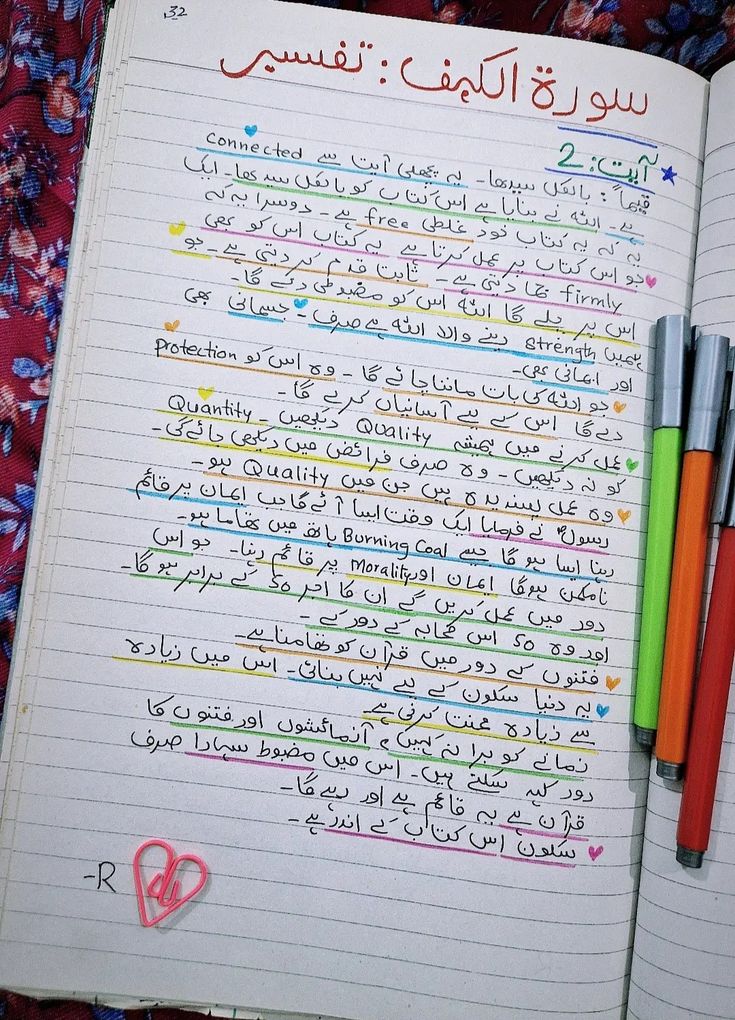 32
سورة الکہف: تفسیر
آیت: 2
قیماً: بالکل سیدھا۔ یہ پچھلی آیت سے connected
ہے۔ اللہ نے بنایا ہے اس کتاب کو بالکل سیدھا۔ ایک
یہ کہ یہ کتاب خود غلطی free ہے۔ دوسرا یہ کہ
جو اس کتاب پر عمل کرتا ہے یہ کتاب اس کو بھی
firmly تھما دیتی ہے۔ ثابت قدم کر دیتی ہے۔ جو
اس پر چلے گا اللہ اس کو مضبوطی دے گا۔
ہمیں strength دینے والا اللہ ہے صرف۔ جسمانی بھی
اور ایمانی بھی۔
جو اللہ کی بات ماننا چائے گا۔ وہ اس کو protection
دے گا اس کے لیے آسانیاں کرے گا۔
عمل کرنے میں ہمیشہ Quality دیکھیں۔ Quantity
کو نہ دیکھیں۔ وہ صرف فرائض میں دیکھی جائے گی۔
وہ عمل پسندیدہ ہیں جن میں Quality ہو۔
رسولؐ نے فرمایا ایک وقت ایسا آئے گا جب ایمان پر قائم
رہنا ایسا ہو گا جیسے Burning Coal ہاتھ میں تھاما ہو۔
ناممکن ہوگا ایمان اور Morality پر قائم رہنا۔ جو اس
دور میں عمل کریں گے ان کا اجر 50 کے برابر ہو گا۔
اور وہ 50 اس صحابہ کے دور کے۔
فتنوں کے دور میں قرآن کو تھامنا ہے۔
یہ دنیا سکون کے لیے نہیں بنائی۔ اس میں زیادہ
سے زیادہ محنت کرنی ہے
زمانے کو برا نہ کہیں، آزمائشوں اور فتنوں کا
دور کہہ سکتے ہیں۔ اس میں مضبوط سہارا صرف
قرآن ہے یہ قائم ہے اور رہے گا۔
سکون اس کتاب کے اندر ہے۔
-R